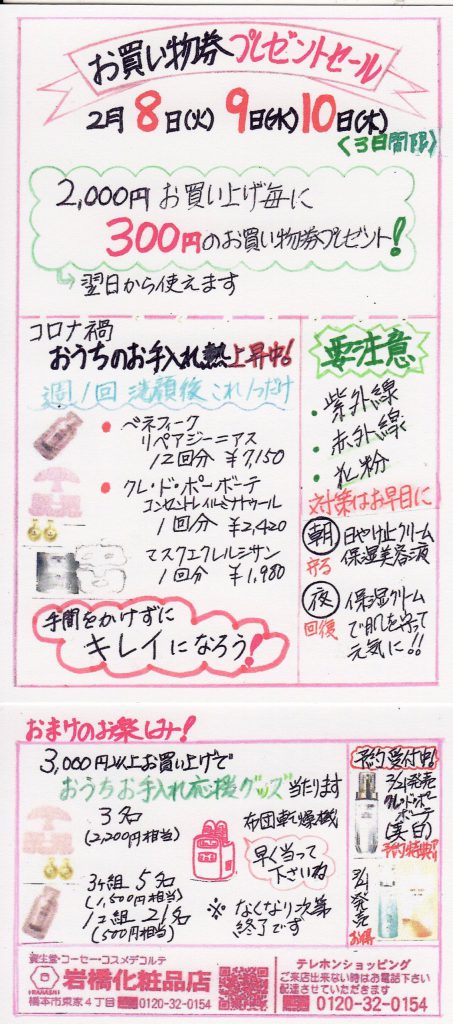 お買い物券プレゼントセール
2月8日(火)9日(水)10日(木)
〈3日間限〉
2,000円お買い上げ毎に
300円のお買い物券プレゼント!
翌日から使えます
コロナ禍
おうちのお手入れ熱上昇中!
週1回 洗顔後 これ1つだけ
• ベネフィーク
リペアジーニアス
12回分 ¥7,150
• クレ・ド・ポーボーテ
コンセントレイルミナトゥール
1回分 ¥2,420
マスクエクレルシサン
1回分 ¥1,980
手間をかけずに
キレイになろう!
要注意
• 紫外線
• 赤外線
• 花粉
対策はお早目に
朝 日やけ止クリーム
守る 保湿美容液
夜 保湿クリーム
回復 で肌を守って
元気に!!
おまけのお楽しみ!
3,000円以上お買上げで
おうちお手入れ応援グッズ当たります
3名
(2,200円相当)
布団乾燥機
早く当って
下さいね
5名
(1,500円相当)
21名
(500円相当)
※ なくなり次第
終了です
予約受付中!
3/21発売
クレ・ド・ポー
ボーテ
(美白)
予約特典
発売
お得
資生堂・コーセー・コスメデコルテ
IWAHASHI
岩橋化粧品店
橋本市東家4丁目 0120-32-0154
テレホンショッピング
ご来店出来ない時はお電話下さい
配達させていただきます
0120-32-0154